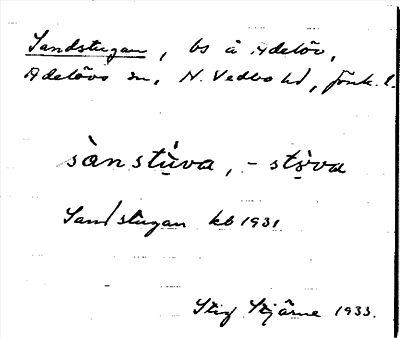 Sandstugan, bs å Adelöv,
Adelövs sn, N. Vedbo hd, Jönk. l.
sàn stụ̀va, - stọ̀va
Sandstugan kb 1931
Stig Stjärne 1933.